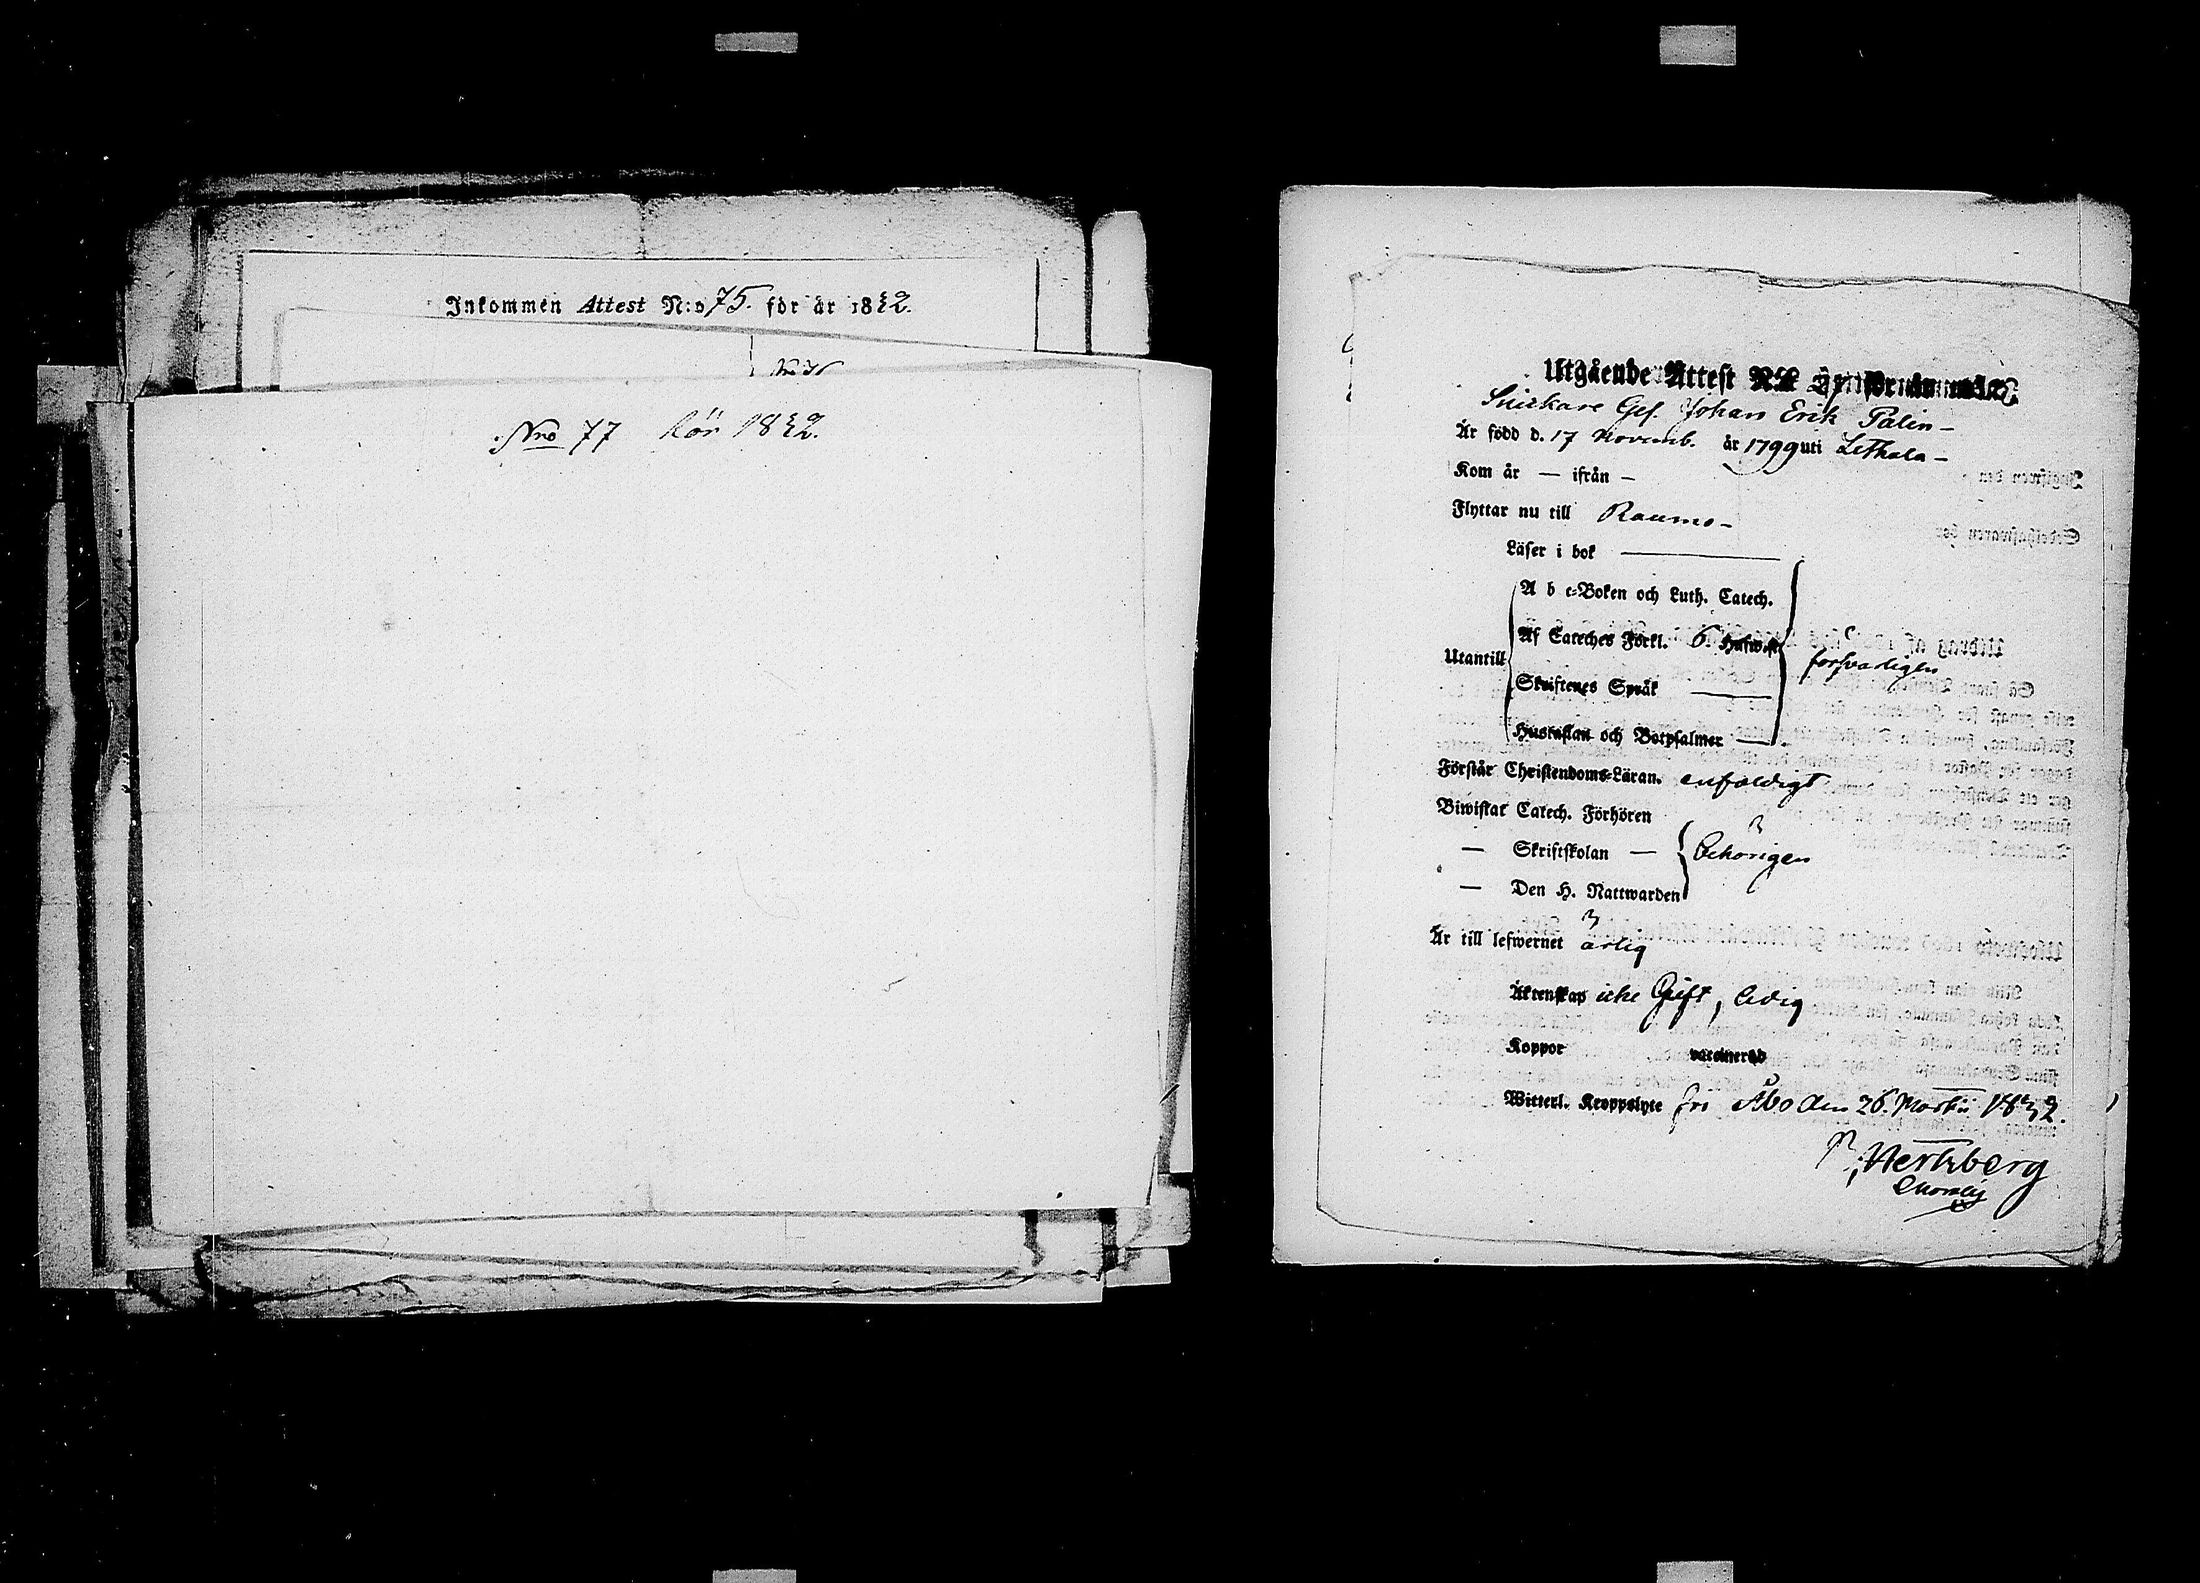 Inkommen Attest N:o 75. för år 1832.
Nro 77 för 1832.
Utgående Attest
Snickare Ges. Johan Erik Palin –
Är född d. 17 Novemb. år 1799 uti Lethala –
Kom år — ifrån –
Flyttar nu till Raumo –
Läser i bok
A b c-Boken och Luth. Catech.
Af Cateches Förkl. 6. Hufwst
Utantill
försvarligen
Skriftenes Språk
Hustaflan och Botpsalmer
Förstår Christendoms-Läran. enfaldigt
Biwistat Catech. Förhören
— Skriftskolan — behörigen
— Den H. Nattwarden
Är till lefwernet ärlig
Äktenskap icke Gift, ledig
Koppor vaccinerad
Witterl. Kroppslyte fri Åbo den 26. Martii 1832.
Hertzberg